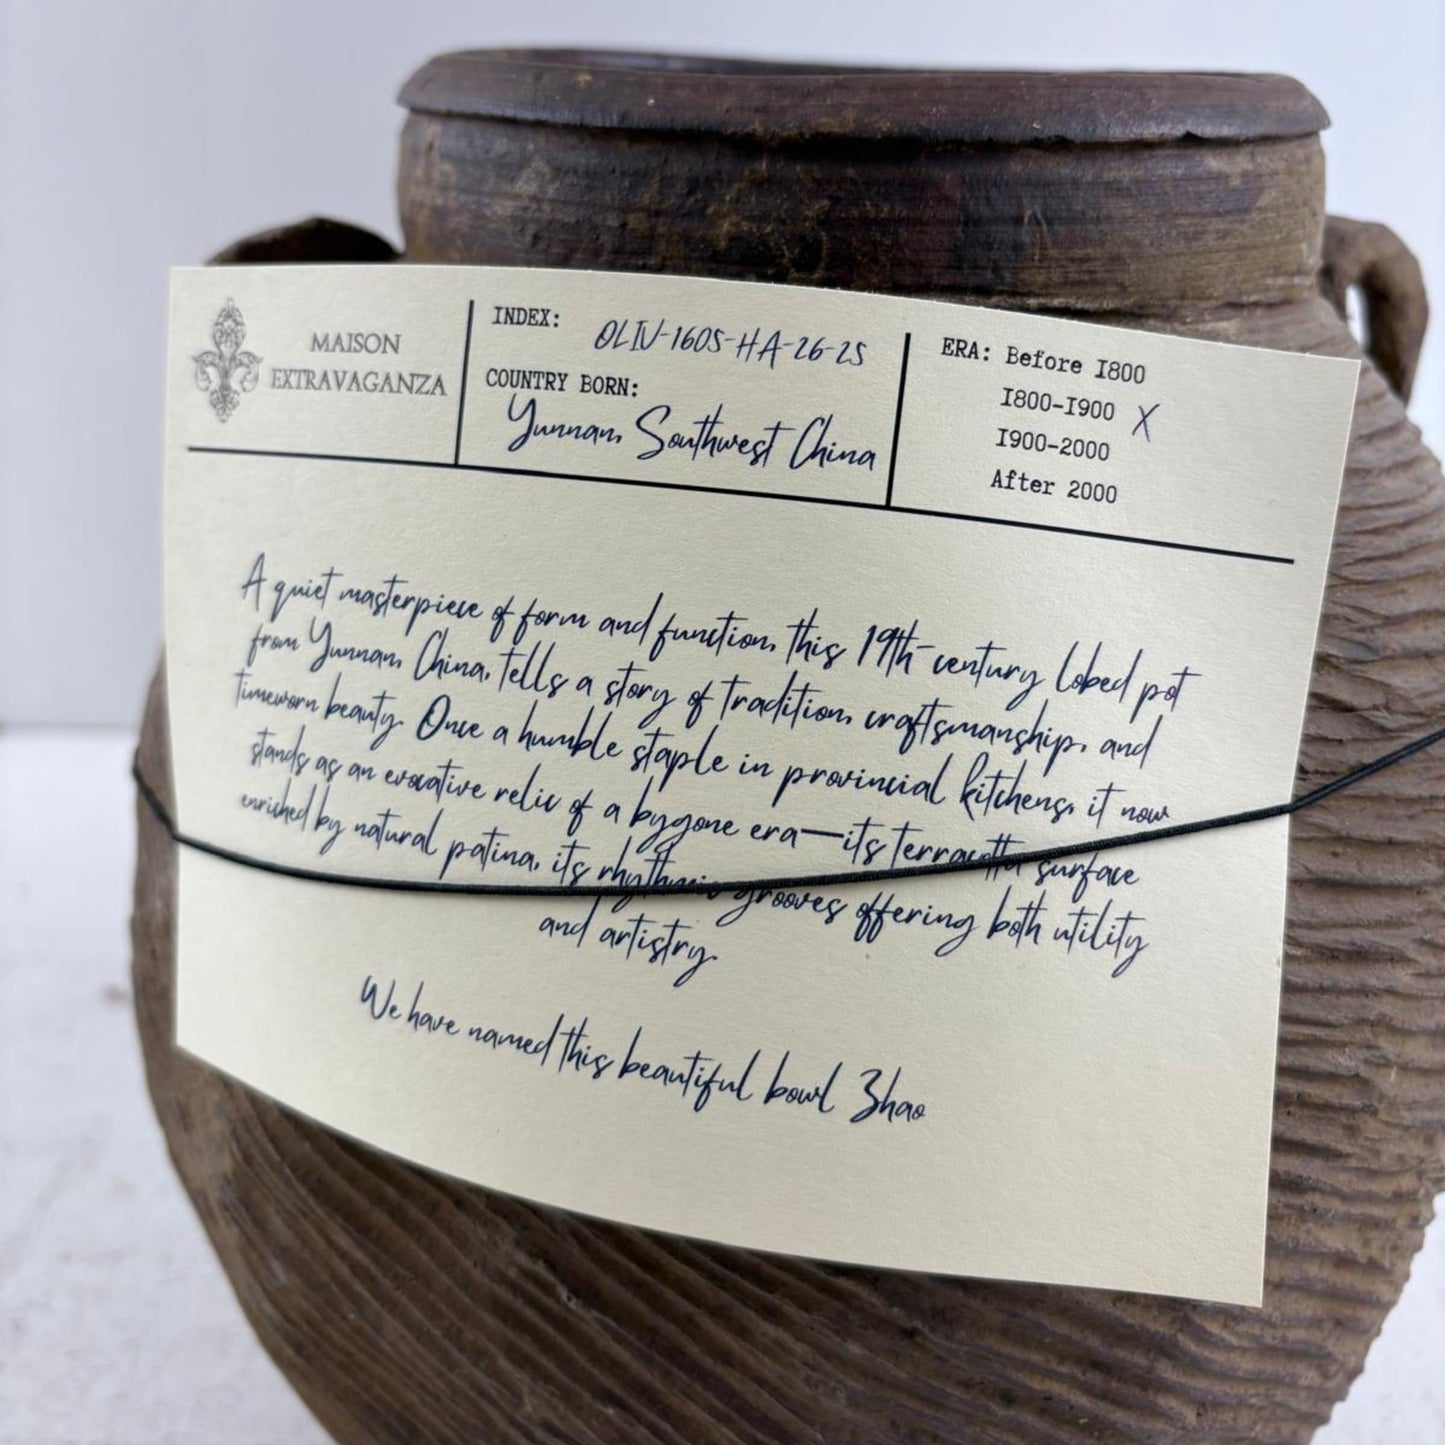 MAISON
EXTRAVAGANZA
INDEX: OLIV-1605-HA-26-25
COUNTRY BORN:
Yunnan, Southwest China
ERA: Before 1800
1800-1900 X
1900-2000
After 2000
A quiet masterpiece of form and function, this 19th-century lobed pot
from Yunnan, China, tells a story of tradition, craftsmanship, and
timeworn beauty. Once a humble staple in provincial kitchens, it now
stands as an evocative relic of a bygone era—its terracotta surface
enriched by natural patina, its rhythmic grooves offering both utility
and artistry.
We have named this beautiful bowl Zhao